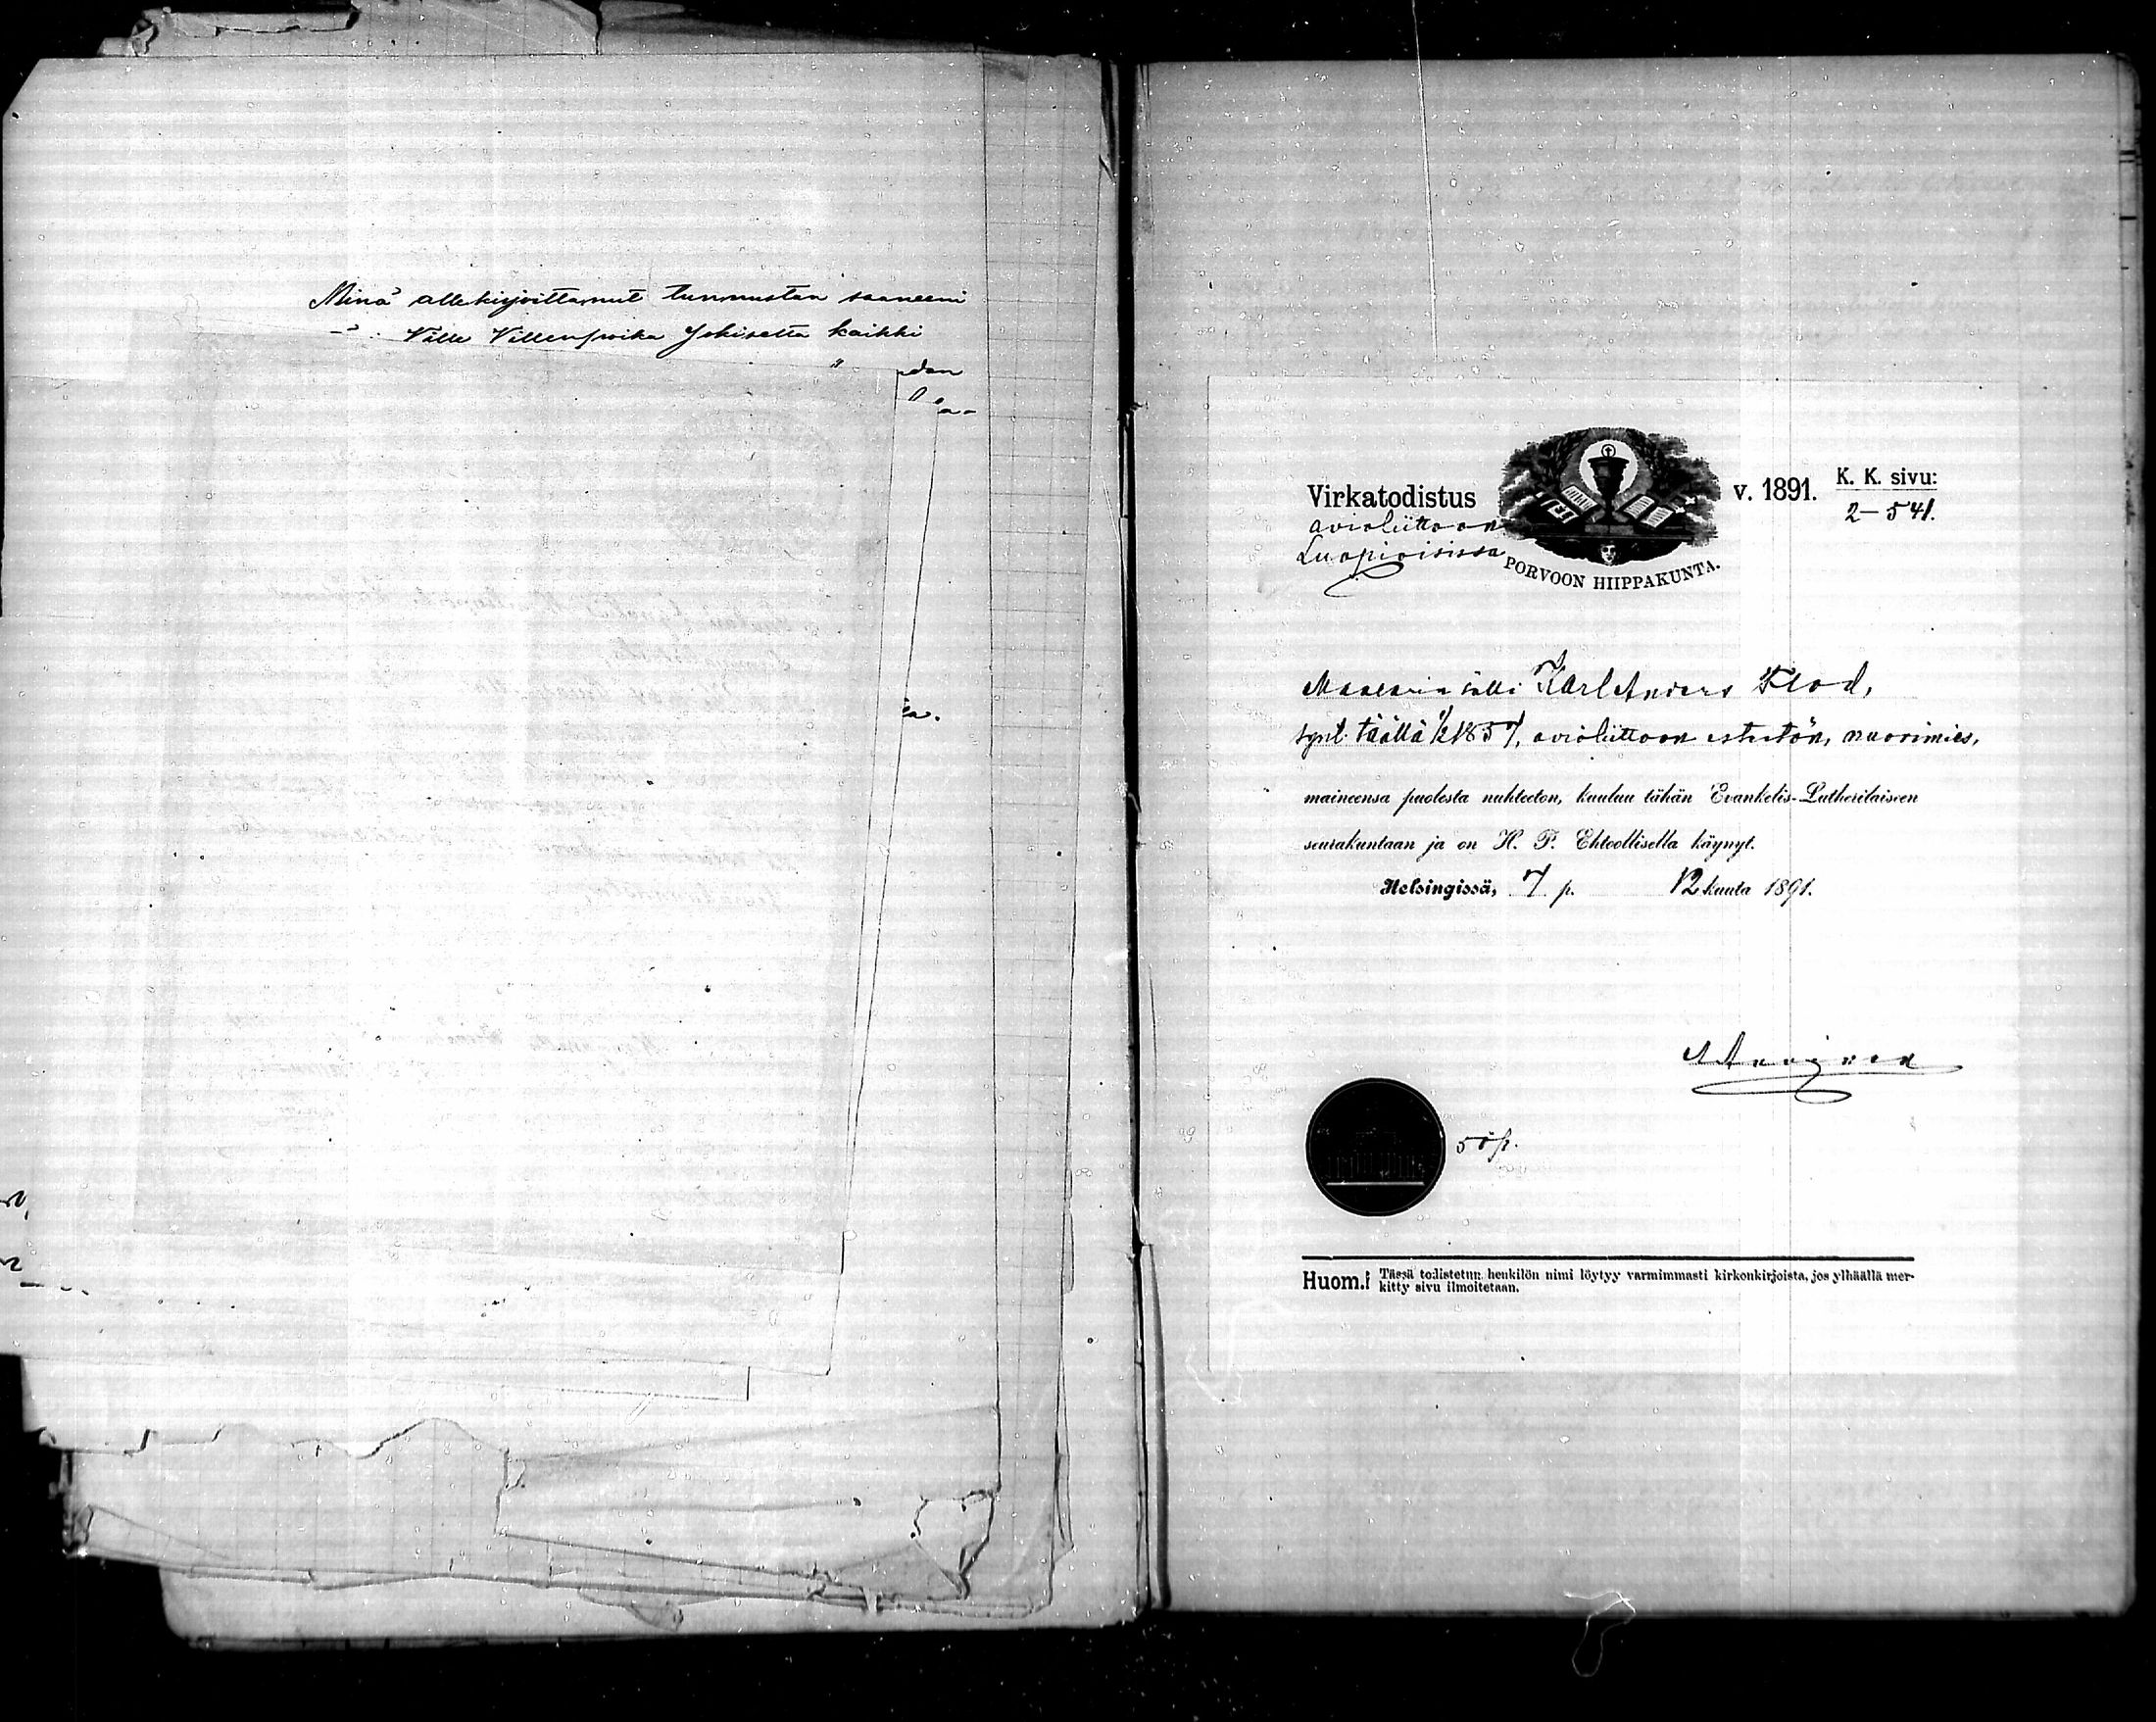 Minä allekirjoittanut tunnustan saaneeni
Ville Villenpoika Jokiselta kaikki
dan
la.
Virkatodistus
avioliittoon
Luopioisissa
PORVOON HIIPPAKUNTA.
v. 1891.
K. K. sivu:
2-541.
Maalarin sälli Karl Anders Flod,
synt. täällä 1857, avioliittoon esteetön, nuorimies,
maineensa puolesta nuhteeton, kuuluu tähän Evankelis-Lutherilaiseen
seurakuntaan ja on H. P. Ehtoollisella käynyt.
Helsingissä, 7 p. 12 kuuta 1891.
50 p.
Huom.! Tässä todistetun henkilön nimi löytyy varmimmasti kirkonkirjoista, jos ylhäällä mer-
kitty sivu ilmoitetaan.